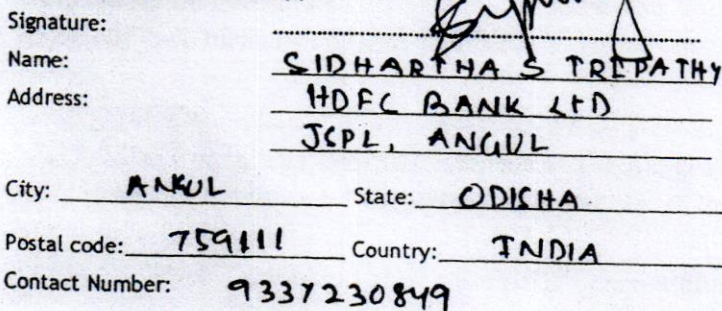 Signature:
Name: SIDHARTHA S TRIPATHY
Address: HDFC BANK LTD
JSPL, ANGUL
City: ANGUL State: ODISHA
Postal code: 759111 Country: INDIA
Contact Number: 9337230849